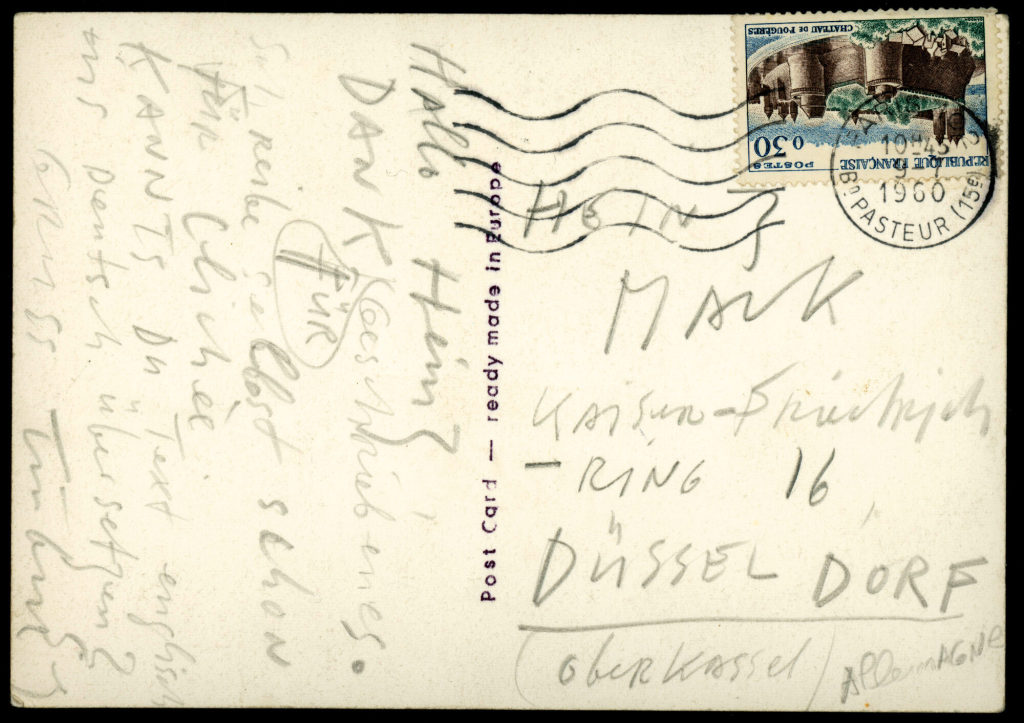 Hallo Heinz
DANK FÜR Geschriebenes.
Schreibe selbst schon
FÜR Cliché
KANNTS DU Text englisch
ins Deutsch übersetzen?
GRUSS
Post Card — ready made in Europe
CHATEAU DE FOUGÈRES
0,30
POSTES
REPUBLIQUE FRANÇAISE
10H45
1960
Bd PASTEUR (15e)
HEINZ
MACK
KAISER-Friedrich
-RING 16
DÜSSELDORF
(OberKassel)
AllemAGNE